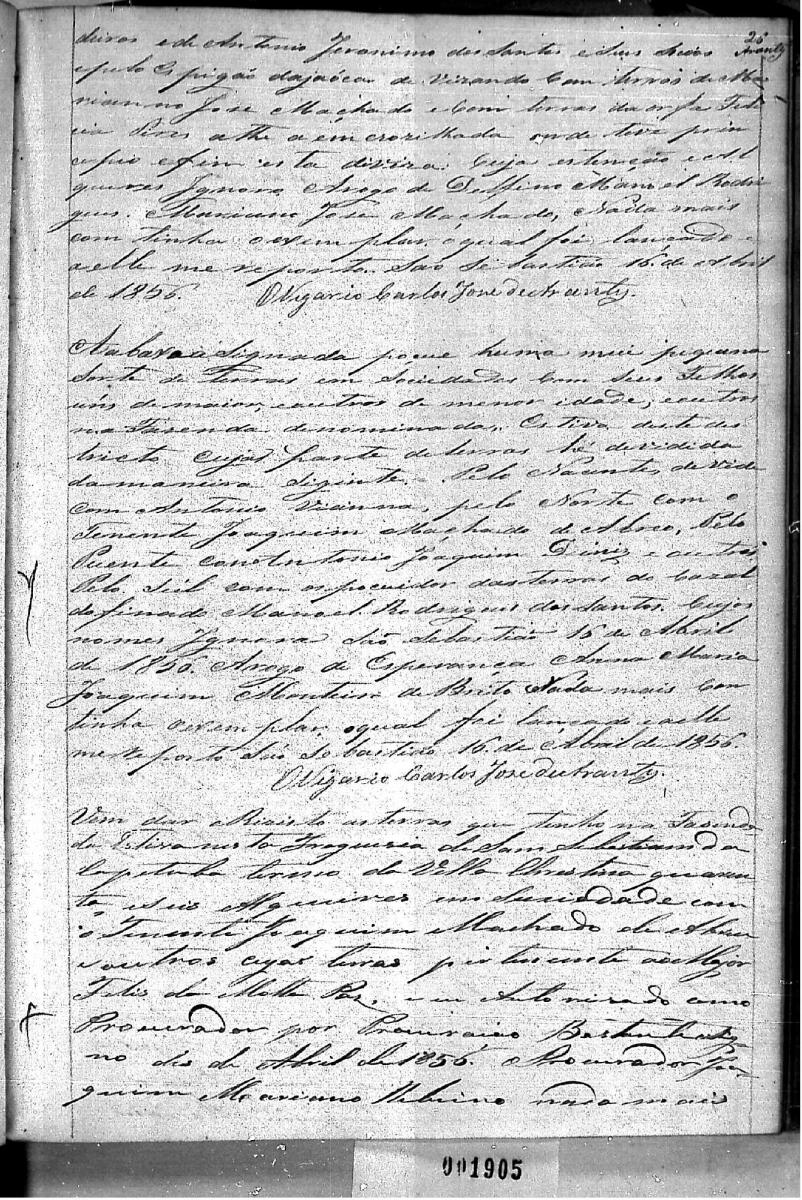 26
Arantz
deiros e de Antonio Jeronimo dos Santos e seus Socios
e pelo Espigão da jaóca de vizando Com terras de Ma-
rianno José Machado e Com terras da orfã Feli-
cia Pires athe a emcrozilhada onde teve prin
cipio e fim esta diviza. Cuja estenção e Al
queires Ignora. Arogo de Delfino Manoel Rodri
gues. Mariano José Machado, Nada mais
com tinha o exem plar, o qual foi lançado e
a elle me reporto. São Sebastião 16 de Abril
de 1856. O Vigario Carlos José de Arantz.
A abaxo aSignada pocue huma mui piquena
Sorte de Terras em Sociedades Com Seus Filhos
uns de maior, e outros de menor idade, e outros
na Fazenda denominada, Estiva deste des
tricto Cujas parte de terras hé devidida
da maneira siginte. Pelo Nacente devide
com Antonio Vianna, pelo Norte com o
Tenente Joaquim Machado de Abreo, Pelo
Puente com Antonio Joaquim Diniz e outros
Pelo Sul com os pocuidor das terras do Cazal
do finado Manoel Rodrigues dos Santos. Cujos
nomes Ignora São Sebastião 16 de Abril
de 1856. Arogo de Esperança Anna Maria
Joaquim Monteiro de Brito Nada mais Con
tinha o exem plar o qual foi lançado e a elle
me reporto São Sebastião 16 de Abril de 1856.
O Vigario Carlos José de Arantz.
Vem dar Rexisto as terras que tenho na Fazend
da Estiva nesta Freguesia de Sam Sebastiam da
Capetuba termo da Villa Christina quaren
ta e seis Alqueires em Suciedade com
o Tenente Joaquim Machado de Abreu
e outros cujas terras pertencente ao Major
Felis da Motta Paz, e eu Autorizado como
Procurador por Procuracão
no dis de Abril de 1856. Procurador Joa-
quim Mariano Ribeiro nada mais
001905